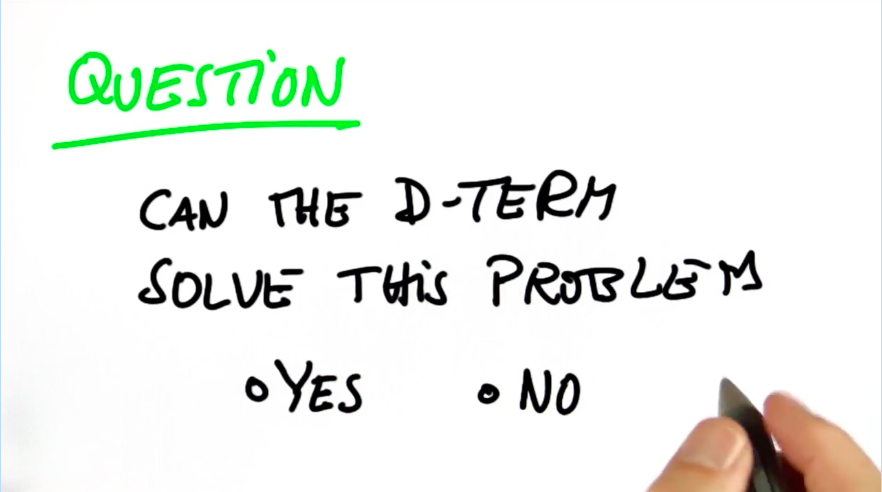 QUESTION
CAN THE D-TERM
SOLVE THIS PROBLEM
YES NO